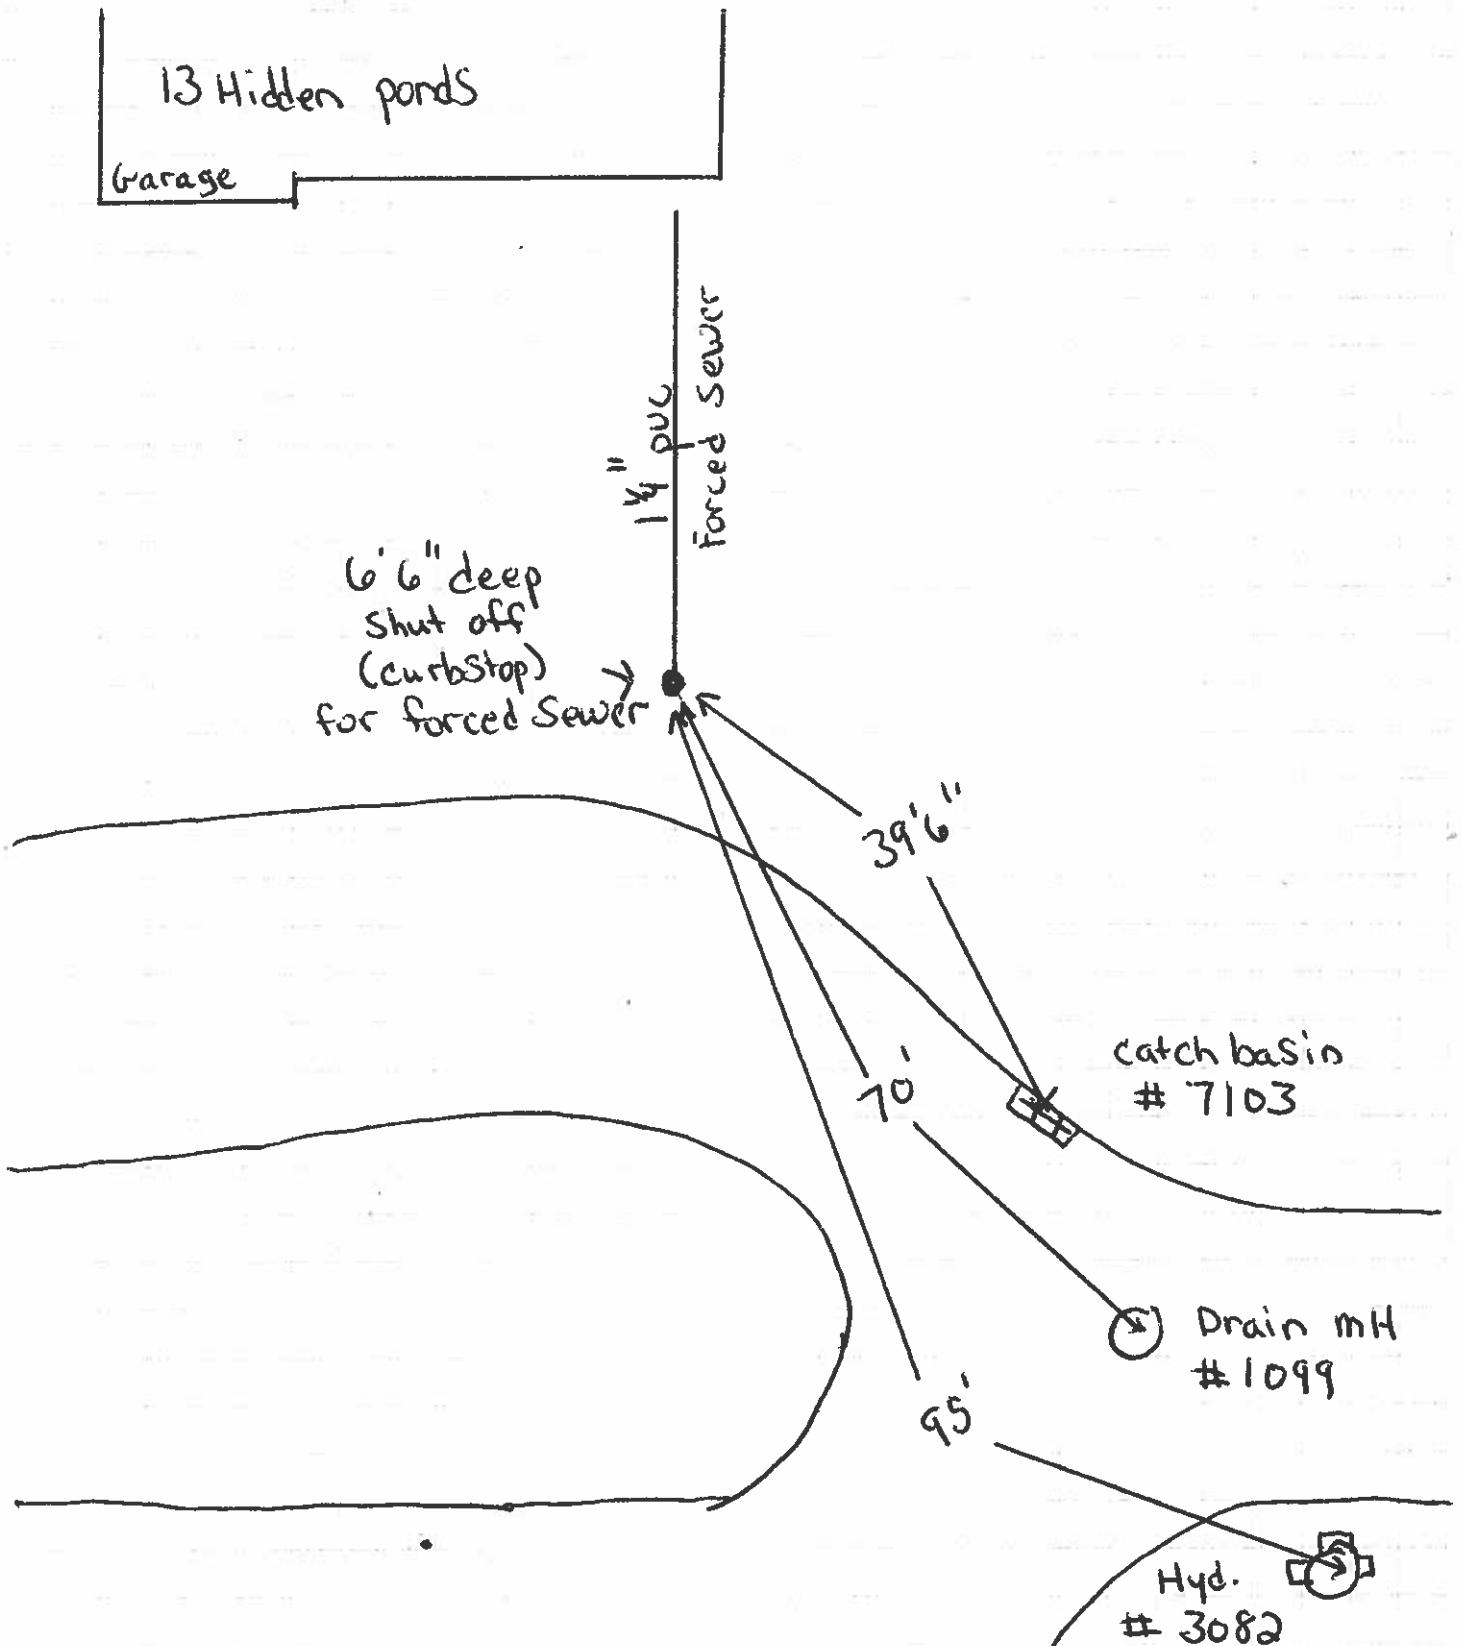 13 Hidden ponds
Garage
1 1/4" pvc
Forced Sewer
6'6" deep
Shut off
(curbstop)
for forced Sewer
39'6"
70'
catch basin
# 7103
Drain mH
# 1099
95'
Hyd.
# 3082